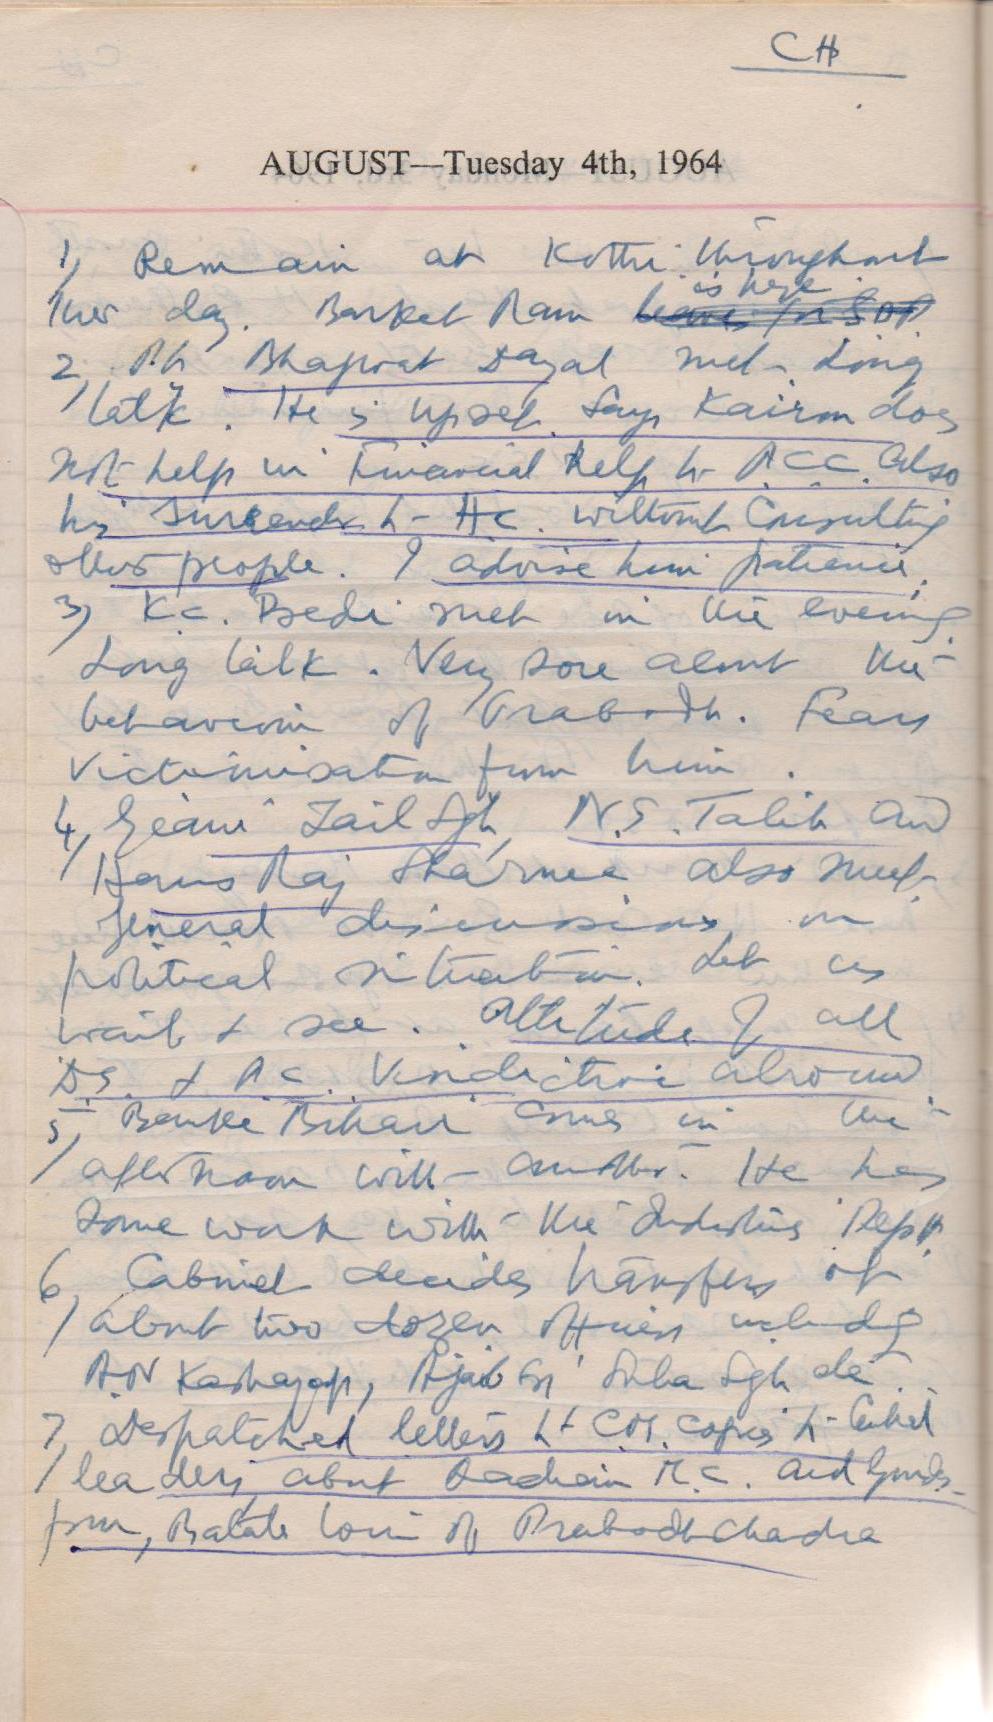 CH
AUGUST—Tuesday 4th, 1964
1, Remain at Kothi throughout
is here
the day. Barket Ram leaves for SDP.
2, Pt Bhagwat Dayal met. Long
talk. He is upset. Says Kairon does
not help in Financial help to PCC. Also
his surrender to HC. without Consulting
other people. I advise him patience.
3, K.C. Bedi met in the evening.
Long talk. Very sore about the
behaviour of Prabodh. Fears
victimisation from him.
4, Giani Zail Sgh, N.S. Talib and
Hans Raj Sharma also met.
General discussions on
political situation. Let us
wait & see. Attitude of all
DS. & AC. Vindictive
5, Banke Bihari comes in the
afternoon with another. He has
some work with the Industries Deptt.
6, Cabinet decides transfers of
about two dozen officers includg
A.N Kashayap, Ajaib Sgh Sgh etc.
7, Despatched letters to CM. copies to Central
leaders about M.C. and
farm, Batala loan of Prabodh Chadra